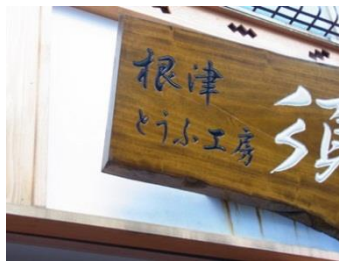 根津
とうふ工房
須